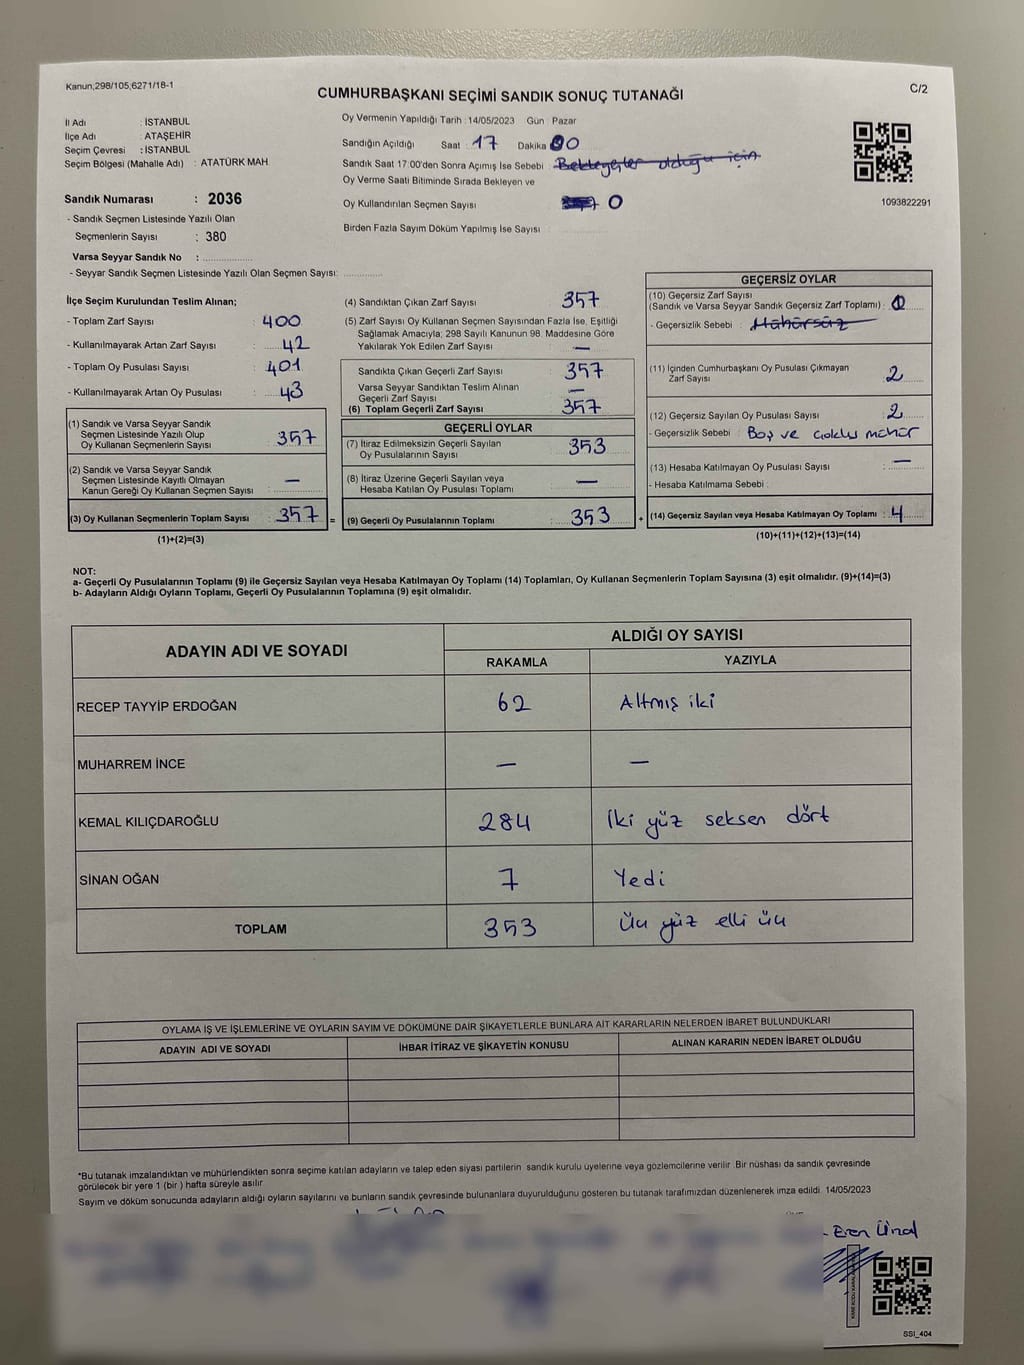 Kanun;298/105;6271/18-1
C/2
CUMHURBAŞKANI SEÇİMİ SANDIK SONUÇ TUTANAĞI
İl Adı : İSTANBUL
İlçe Adı : ATAŞEHİR
Seçim Çevresi : İSTANBUL
Seçim Bölgesi (Mahalle Adı) : ATATÜRK MAH
Sandık Numarası : 2036
- Sandık Seçmen Listesinde Yazılı Olan
Seçmenlerin Sayısı : 380
Varsa Seyyar Sandık No :
- Seyyar Sandık Seçmen Listesinde Yazılı Olan Seçmen Sayısı:
Oy Vermenin Yapıldığı Tarih : 14/05/2023 Gün : Pazar
Sandığın Açıldığı Saat : 17 Dakika : 00
Sandık Saat 17:00'den Sonra Açımış İse Sebebi : Bekleyenler olduğu için
Oy Verme Saati Bitiminde Sırada Bekleyen ve
Oy Kullandırılan Seçmen Sayısı 0
Birden Fazla Sayım Döküm Yapılmış İse Sayısı :
1093822291
İlçe Seçim Kurulundan Teslim Alınan;
- Toplam Zarf Sayısı : 400
- Kullanılmayarak Artan Zarf Sayısı : 42
- Toplam Oy Pusulası Sayısı : 401
- Kullanılmayarak Artan Oy Pusulası : 43
(1) Sandık ve Varsa Seyyar Sandık
Seçmen Listesinde Yazılı Olup
Oy Kullanan Seçmenlerin Sayısı : 357
(2) Sandık ve Varsa Seyyar Sandık
Seçmen Listesinde Kayıtlı Olmayan
Kanun Gereği Oy Kullanan Seçmen Sayısı : —
(3) Oy Kullanan Seçmenlerin Toplam Sayısı : 357 =
(1)+(2)=(3)
(4) Sandıktan Çıkan Zarf Sayısı : 357
(5) Zarf Sayısı Oy Kullanan Seçmen Sayısından Fazla İse, Eşitliği
Sağlamak Amacıyla; 298 Sayılı Kanunun 98. Maddesine Göre
Yakılarak Yok Edilen Zarf Sayısı : —
Sandıkta Çıkan Geçerli Zarf Sayısı : 357
Varsa Seyyar Sandıktan Teslim Alınan
Geçerli Zarf Sayısı : —
(6) Toplam Geçerli Zarf Sayısı : 357
GEÇERLİ OYLAR
(7) İtiraz Edilmeksizin Geçerli Sayılan
Oy Pusulalarının Sayısı : 353
(8) İtiraz Üzerine Geçerli Sayılan veya
Hesaba Katılan Oy Pusulası Toplamı : —
(9) Geçerli Oy Pusulalarının Toplamı : 353 +
GEÇERSİZ OYLAR
(10) Geçersiz Zarf Sayısı
(Sandık ve Varsa Seyyar Sandık Geçersiz Zarf Toplamı) :
- Geçersizlik Sebebi : Mühürsüz
(11) İçinden Cumhurbaşkanı Oy Pusulası Çıkmayan
Zarf Sayısı : 2
(12) Geçersiz Sayılan Oy Pusulası Sayısı : 2
- Geçersizlik Sebebi : Boş ve çoklu mühür
(13) Hesaba Katılmayan Oy Pusulası Sayısı : —
- Hesaba Katılmama Sebebi :
(14) Geçersiz Sayılan veya Hesaba Katılmayan Oy Toplamı : 4
(10)+(11)+(12)+(13)=(14)
NOT:
a- Geçerli Oy Pusulalarının Toplamı (9) ile Geçersiz Sayılan veya Hesaba Katılmayan Oy Toplamı (14) Toplamları, Oy Kullanan Seçmenlerin Toplam Sayısına (3) eşit olmalıdır. (9)+(14)=(3)
b- Adayların Aldığı Oyların Toplamı, Geçerli Oy Pusulalarının Toplamına (9) eşit olmalıdır.
ADAYIN ADI VE SOYADI ALDIĞI OY SAYISI
RAKAMLA YAZIYLA
RECEP TAYYİP ERDOĞAN 62 Altmış iki
MUHARREM İNCE — —
KEMAL KILIÇDAROĞLU 284 İki yüz seksen dört
SİNAN OĞAN 7 Yedi
TOPLAM 353 Üç yüz elli üç
OYLAMA İŞ VE İŞLEMLERİNE VE OYLARIN SAYIM VE DÖKÜMÜNE DAİR ŞİKAYETLERLE BUNLARA AİT KARARLARIN NELERDEN İBARET BULUNDUKLARI
ADAYIN ADI VE SOYADI İHBAR İTİRAZ VE ŞİKAYETİN KONUSU ALINAN KARARIN NEDEN İBARET OLDUĞU
*Bu tutanak imzalandıktan ve mühürlendikten sonra seçime katılan adayların ve talep eden siyasi partilerin sandık kurulu üyelerine veya gözlemcilerine verilir. Bir nüshası da sandık çevresinde
görülecek bir yere 1 (bir ) hafta süreyle asılır.
Sayım ve döküm sonucunda adayların aldığı oyların sayılarını ve bunların sandık çevresinde bulunanlara duyurulduğunu gösteren bu tutanak tarafımızdan düzenlenerek imza edildi. 14/05/2023
Eren Ünal
SSI_404